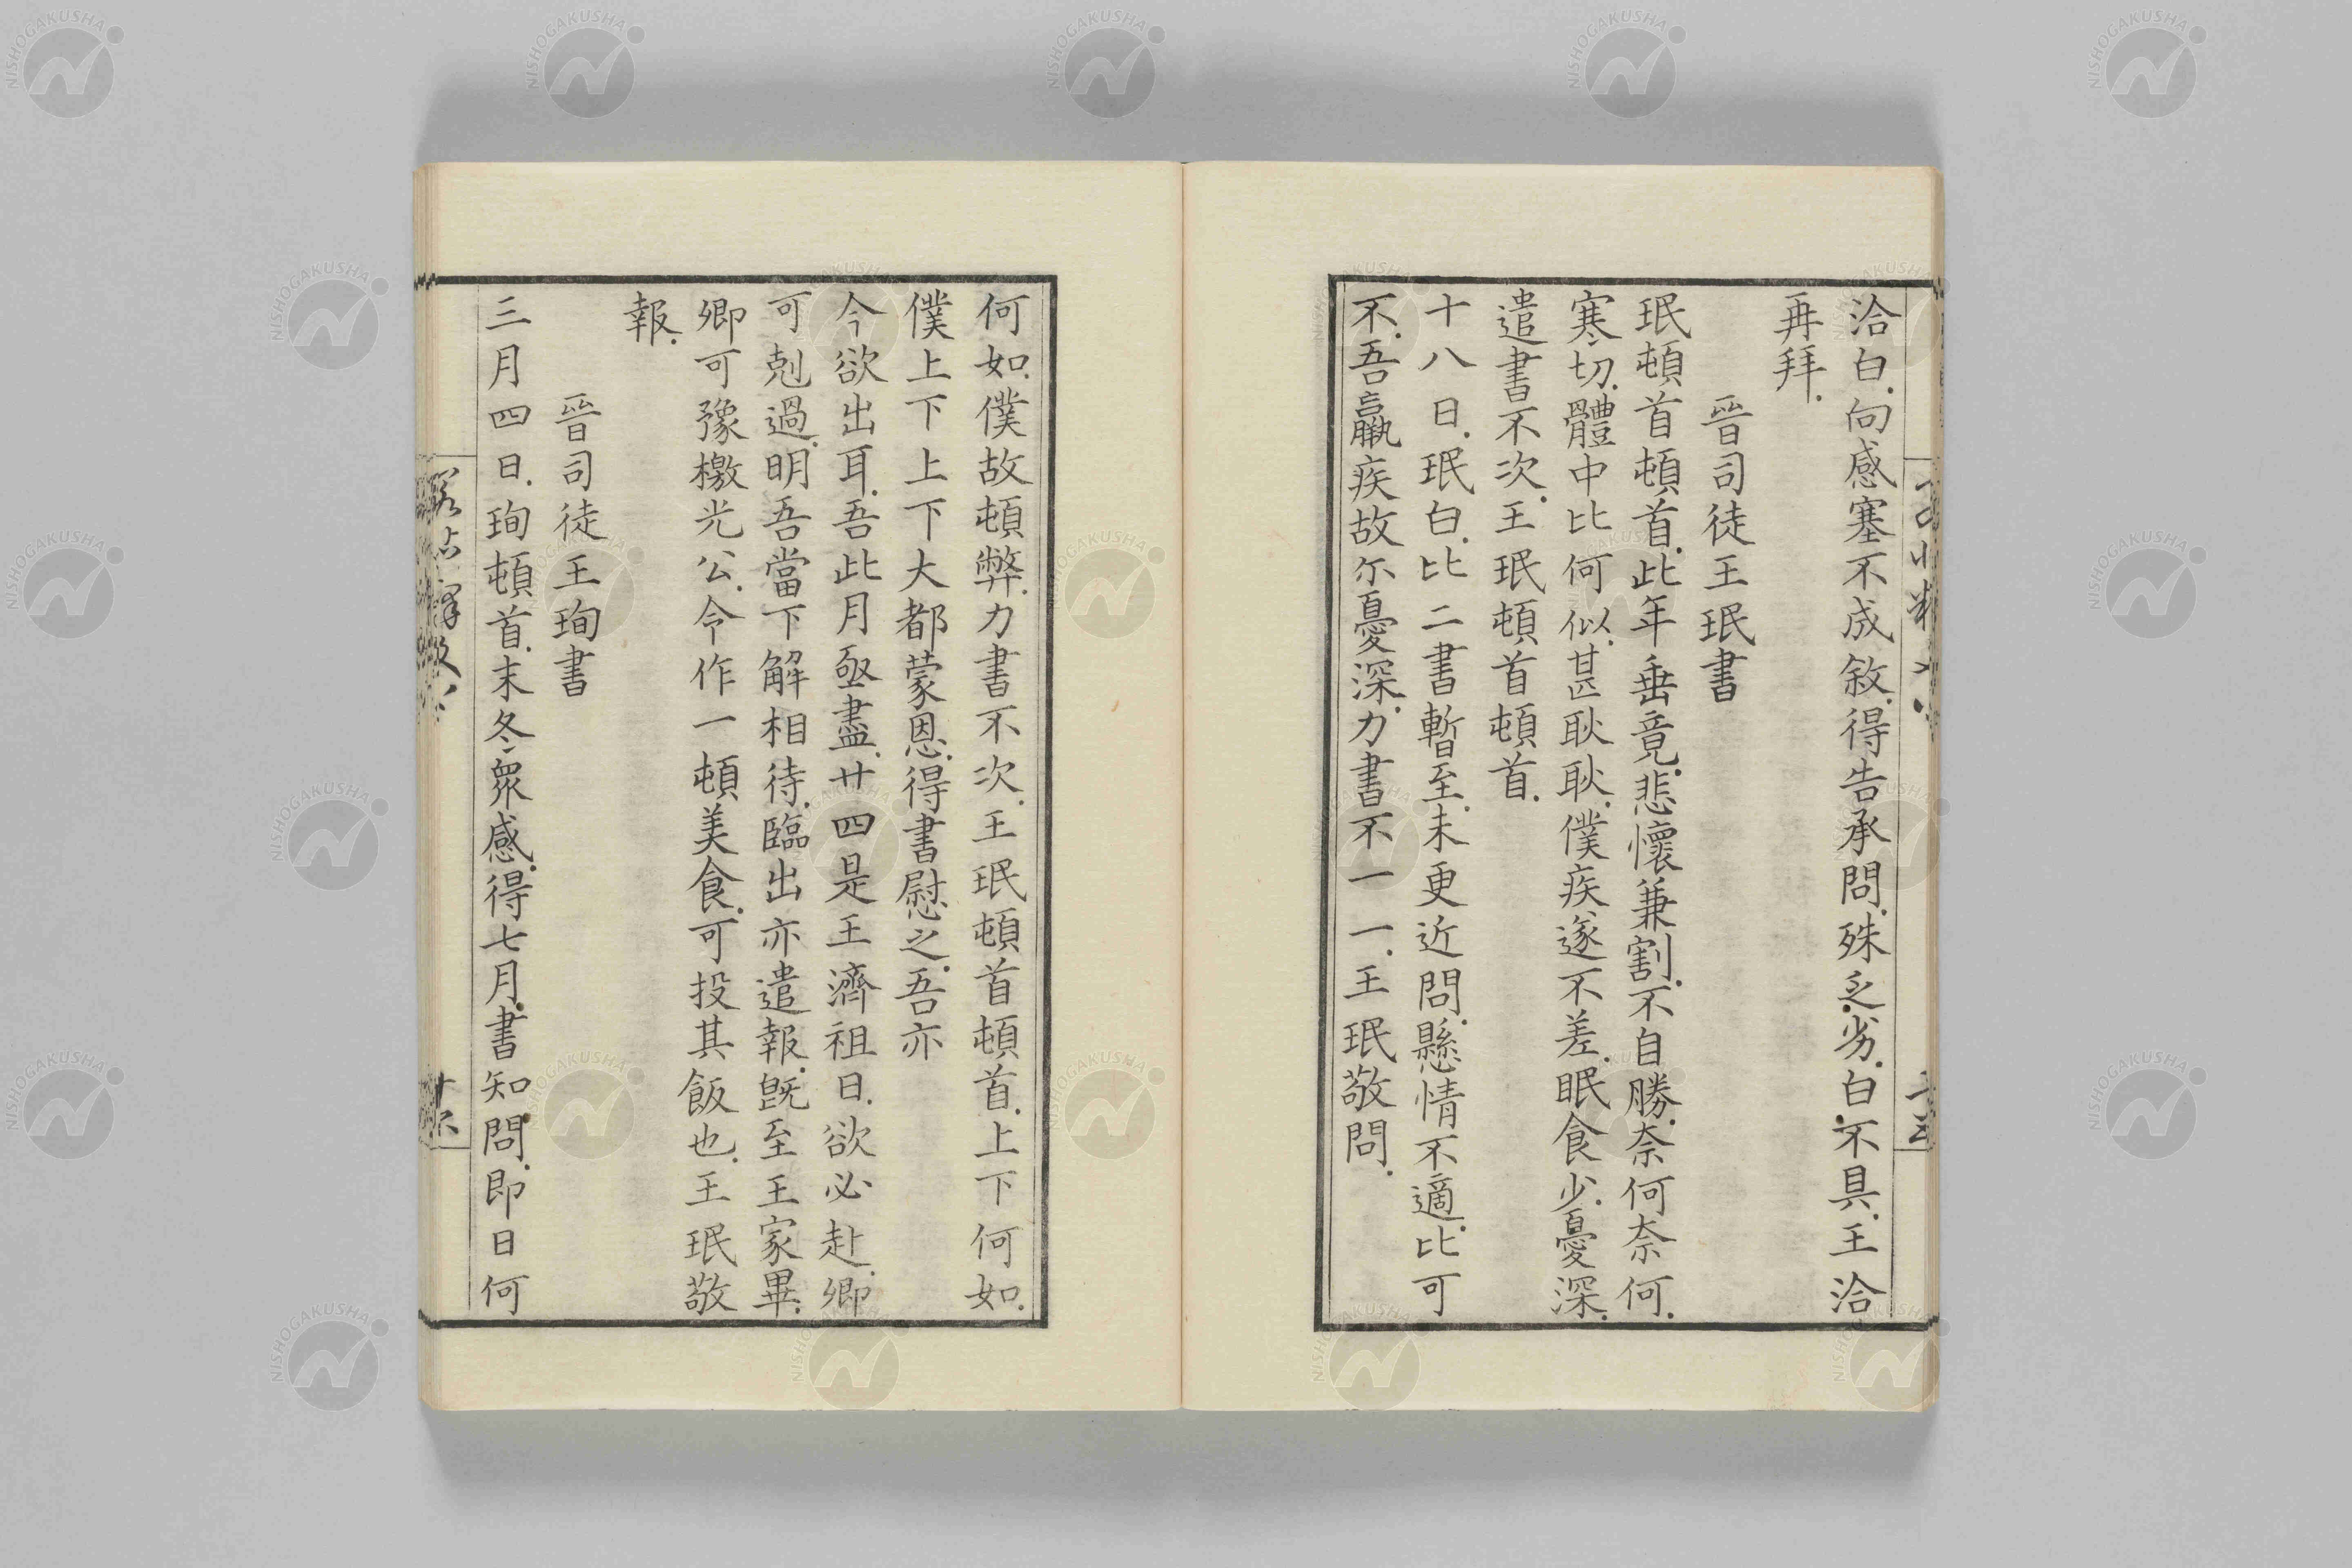 洽白.向感塞不成敘.得告承問.殊乏.劣.白.不具.王洽
再拜.
晉司徒王珉書
珉頓首頓首.此年垂竟.悲懷兼割.不自勝.奈何奈何.
寒切.體中比何似.甚耿耿.僕疾遂不差.眠食少.憂深.
遣書不次.王珉頓首頓首.
十八日.珉白.比二書暫至.未更近問.懸情不適.比可
不.吾羸疾故尓憂深.力書不一一.王珉敬問.
何如.僕故頓弊.力書不次.王珉頓首頓首.上下何如.
僕上下上下大都蒙恩.得書慰之.吾亦
今欲出耳.吾此月亟盡.廿四是王濟祖日.欲必赴.卿
可剋過.明吾當下解相待.臨出亦遣報.旣至王家畢.
卿可豫檄光公.令作一頓美食.可投其飯也.王珉敬
報.
晉司徒王珣書
三月四日.珣頓首.末冬衆感.得七月.書知問.即日何